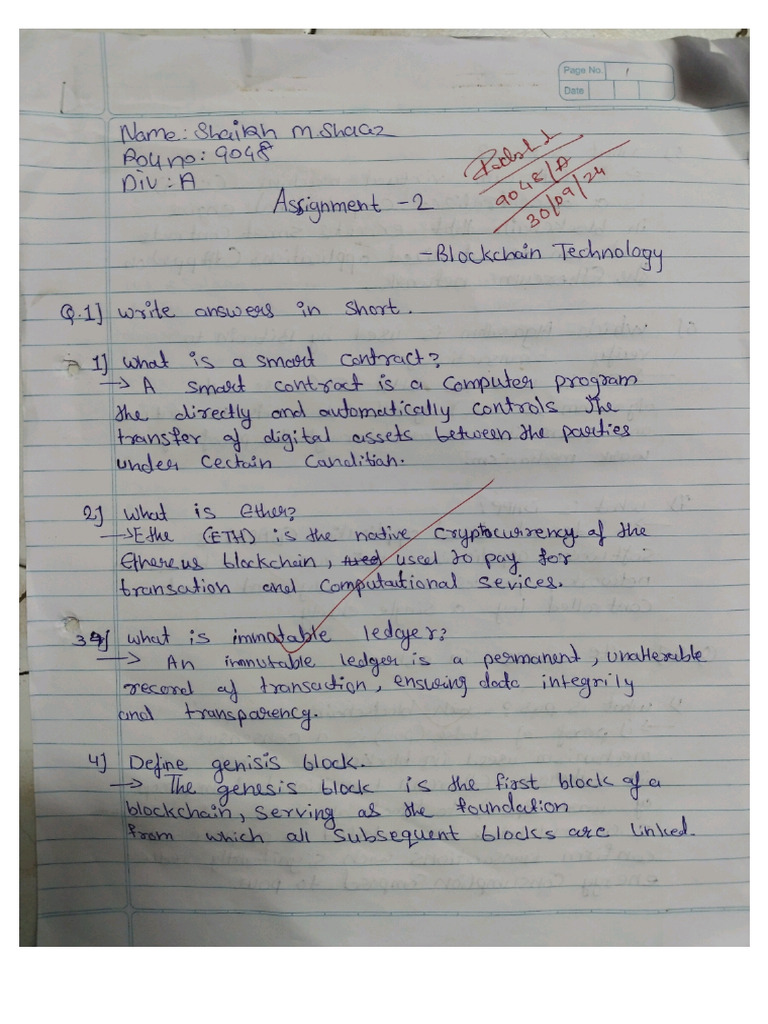 Page No. 1
Date
Name: Shaikh M Shaaz
Roll no: 9048
Div: A
9048/A
30/09/24
Assignment - 2
- Blockchain Technology
Q.1] Write answers in short.
1] What is a smart contract?
→ A smart contract is a computer program
the directly and automatically controls the
transfer of digital assets between the parties
under certain candition.
2] What is Ether?
→ Ethe (ETH) is the native cryptocurrency of the
Ethereus blockchain, used to pay for
transation and computational sevices.
3] What is immutable ledger?
→ An immutable ledger is a permanent, unalterable
record of transaction, ensuring data integrily
and transparency.
4] Define genisis block.
→ The genesis block is the first block of a
blockchain, serving as the foundation
from which all subsequent blocks are linked.